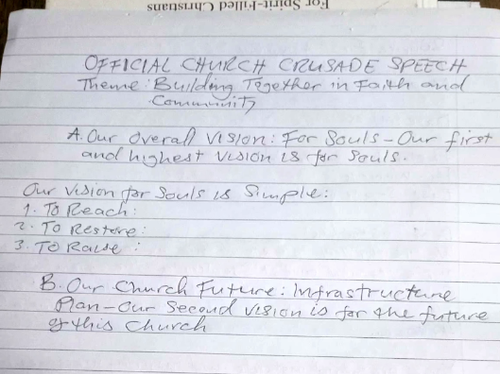 For Spirit-Filled Christians
OFFICIAL CHURCH CRUSADE SPEECH
Theme: Building Together in Faith and
Community
A. Our overall vision: For Souls - Our first
and highest vision is for souls.
Our vision for souls is simple:
1. To Reach:
2. To Restore:
3. To Raise:
B. Our Church Future: Infrastructure
Plan - Our second vision is for the future
of this church